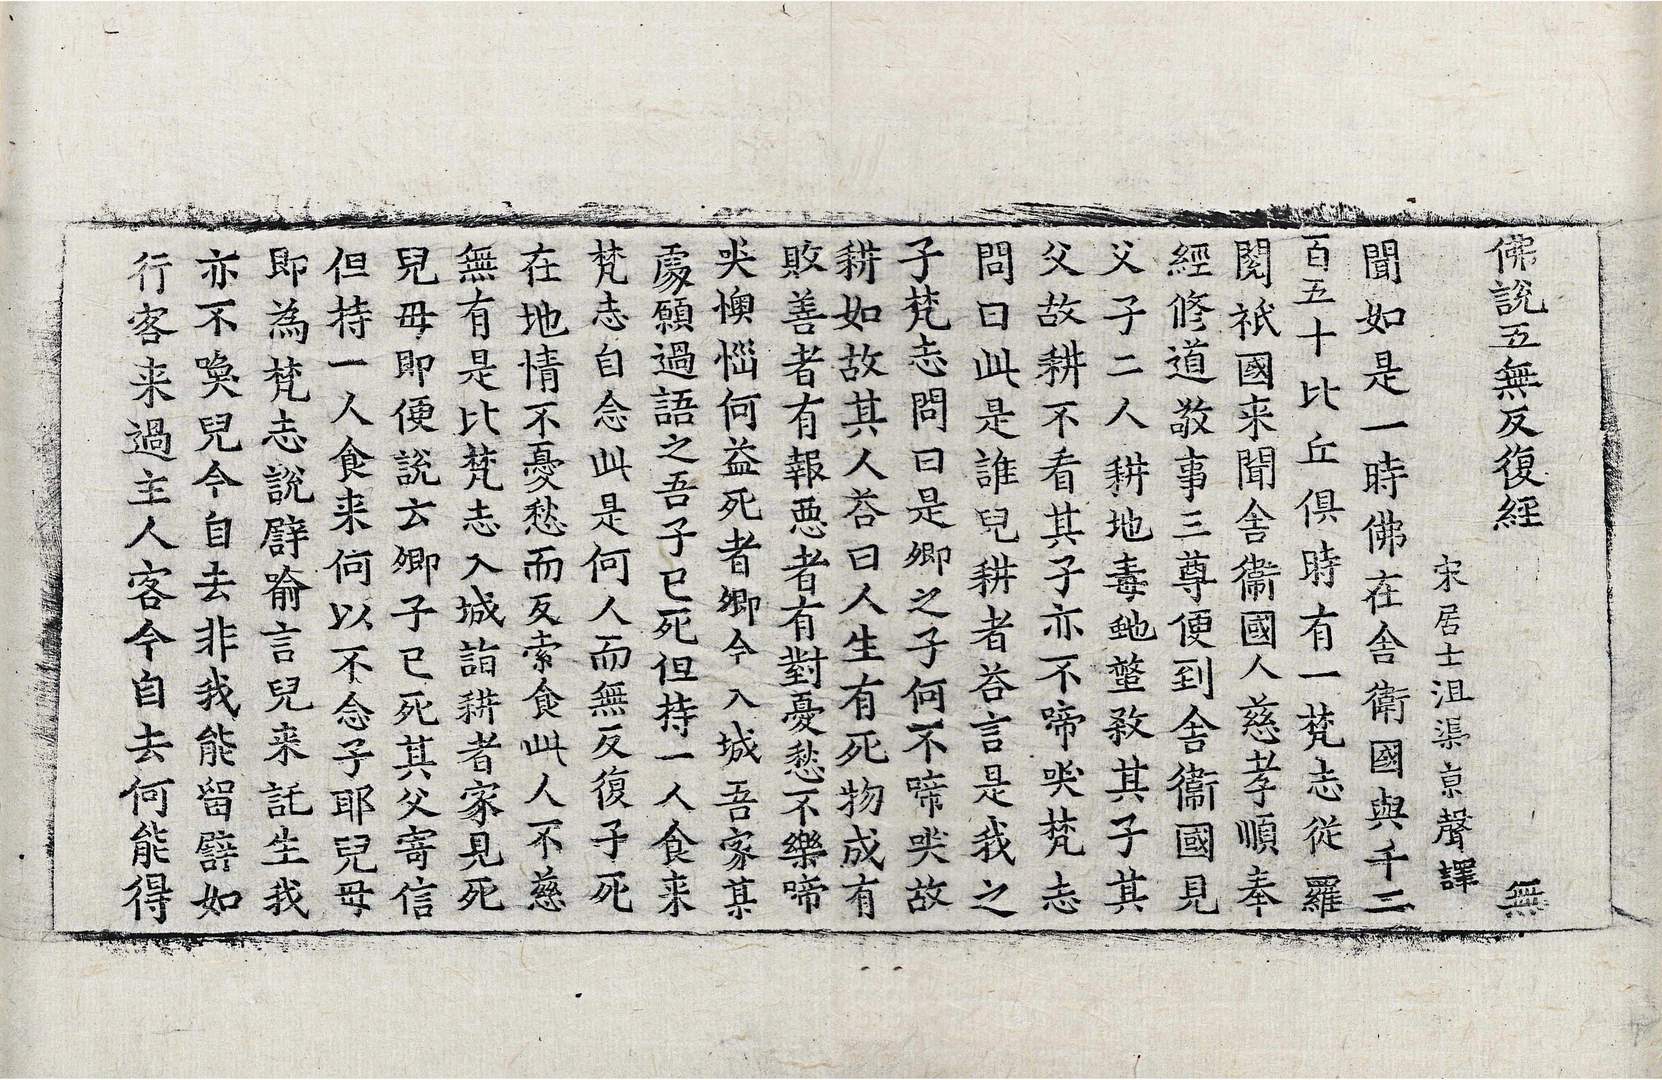 佛說五無反復經 無
宋居士沮渠京聲譯
聞如是一時佛在舍衛國與千二
百五十比丘俱時有一梵志從羅
閱祇國来聞舍衛國人慈孝順奉
經修道敬事三尊便到舍衛國見
父子二人耕地毒虵螫煞其子其
父故耕不看其子亦不啼哭梵志
問曰此是誰兒耕者荅言是我之
子梵志問曰是卿之子何不啼哭故
耕如故其人荅曰人生有死物成有
敗善者有報惡者有對憂愁不樂啼
哭懊惱何益死者卿今入城吾家某
處願過語之吾子已死但持一人食来
梵志自念此是何人而無反復子死
在地情不憂愁而反索食此人不慈
無有是比梵志入城詣耕者家見死
兒母即便說云卿子已死其父寄信
但持一人食来何以不念子耶兒母
即為梵志說譬喻言兒来託生我
亦不喚兒今自去非我能留譬如
行客来過主人客今自去何能得